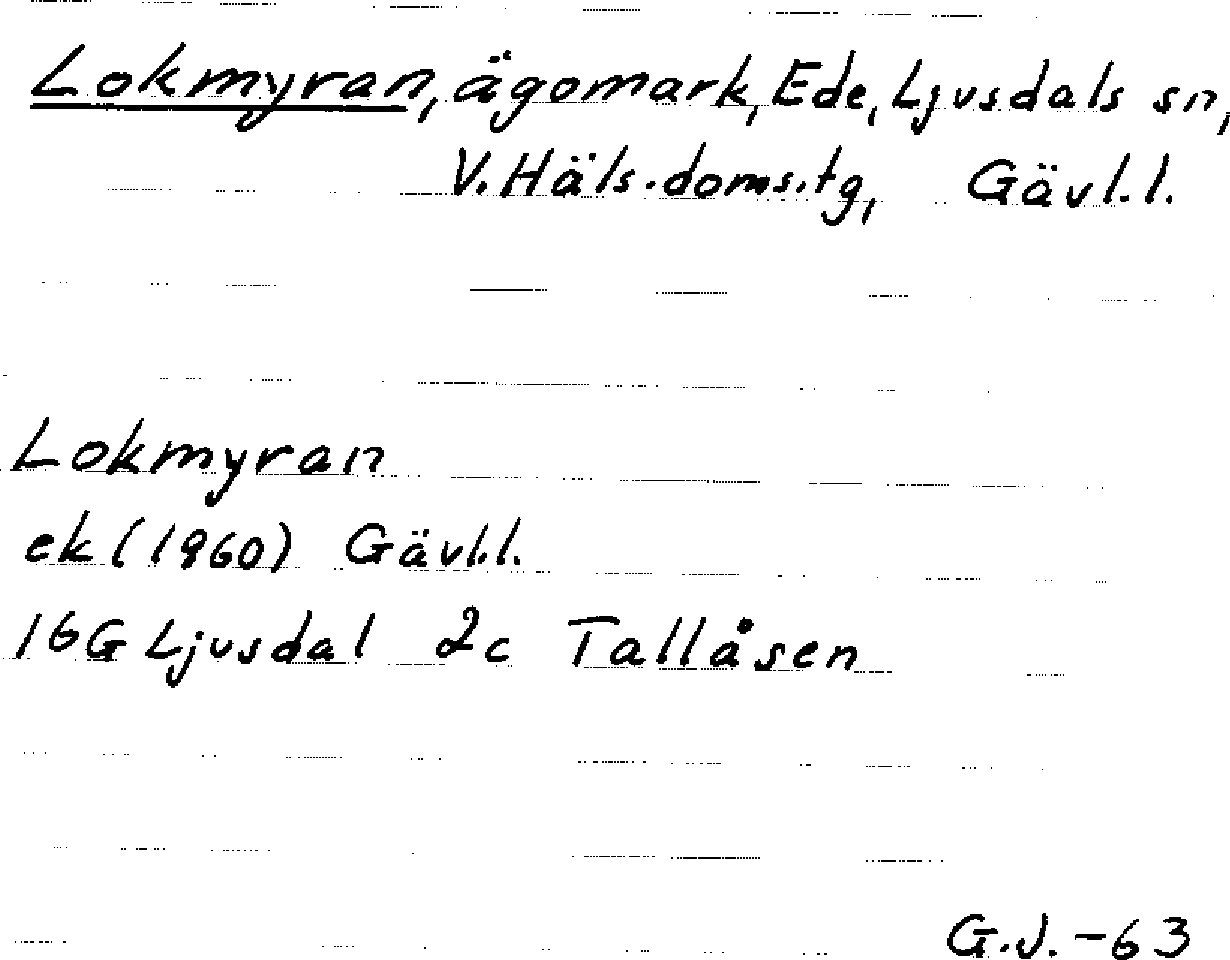 Lokmyran, ägomark, Ede, Ljusdals sn,
V. Häls. doms. tg, Gävl. l.
Lokmyran
ek (1960) Gävl. l.
16G Ljusdal 2c Tallåsen
G.J. -63